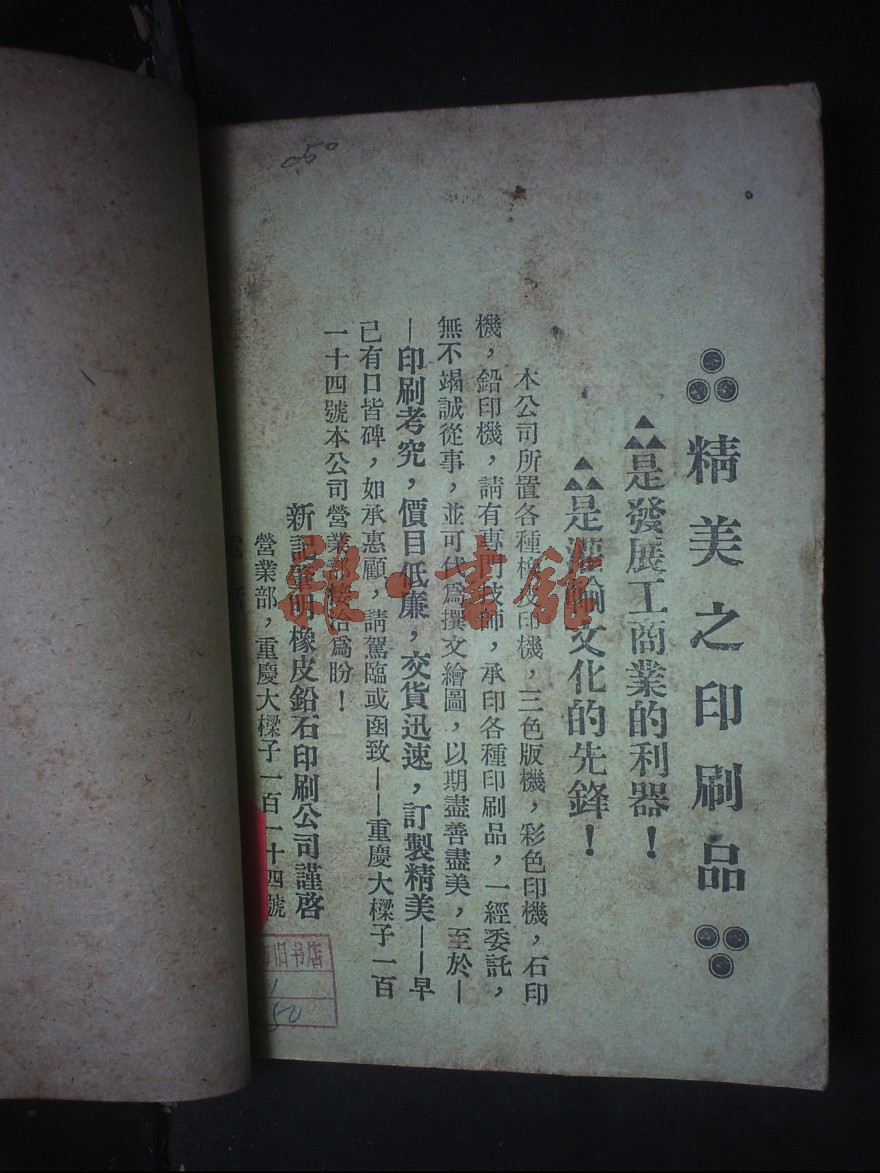 精美之印刷品
▲▲▲是發展工商業的利器！
▲▲▲是灌輸文化的先鋒！
本公司所置各種橡皮印機，三色版機，彩色印機，石印
機，鉛印機，請有專門技師，承印各種印刷品，一經委託，
無不竭誠從事，並可代爲撰文繪圖，以期盡善盡美，至於—
—印刷考究，價目低廉，交貨迅速，訂製精美——早
已有口皆碑，如承惠顧，請駕臨或函致——重慶大樑子一百
一十四號本公司營業部接洽爲盼！
新記 橡皮鉛石印刷公司謹啓
營業部，重慶大樑子一百一十四號
雜·書館
旧书店
050
50